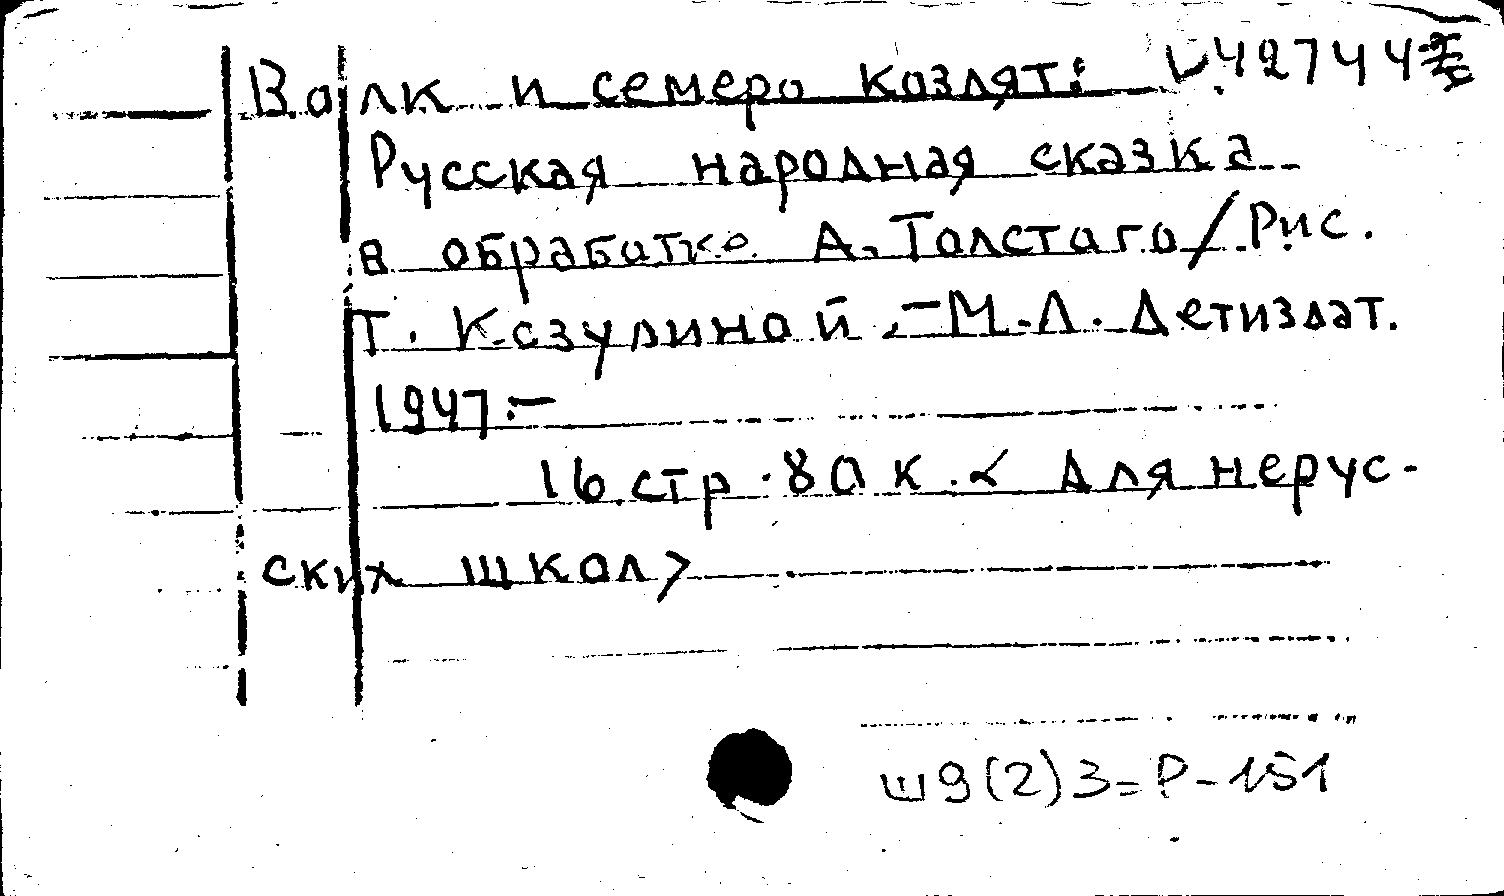 Волк и семеро козлят: 42744
Русская народная сказка
в обработке А. Толстаго/Рис.
Т. Козулиной.-М.Л. Детиздат.
1947.-
16 стр. 80 к. < Для нерус-
ских школ>
ш9(2)3=Р-151